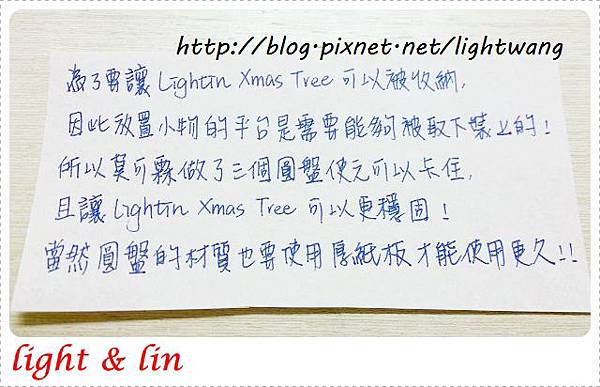 http://blog.pixnet.net/lightwang
為了要讓 Lightin Xmas Tree 可以被收納,
因此放置小物的平台是需要能夠被取下裝上的!
所以莫可霖做了三個圓盤使元可以卡住,
且讓 Lightin Xmas Tree 可以更穩固!
當然圓盤的材質也要使用厚紙板才能使用更久!!
light & lin